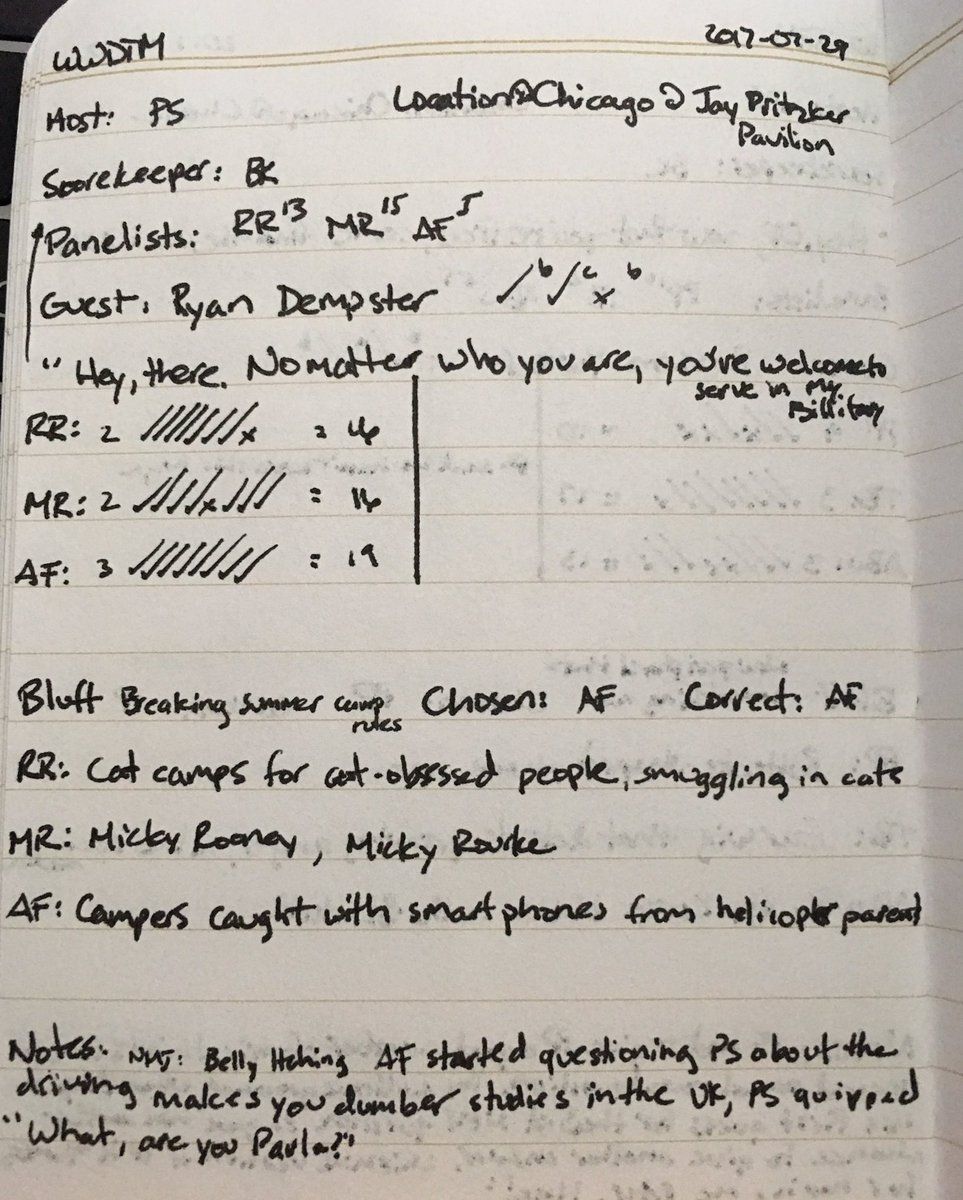 WWDTM 2017-07-29
Host: PS Location: Chicago @ Jay Pritzker
Pavilion
Scorekeeper: BK
Panelists: RR 13 MR 15 AF 5
Guest: Ryan Dempster ✓b ✓c xb
"Hey, there. No matter who you are, you're welcome to
serve in my
Billitary
RR: 2 ///////x = 16
MR: 2 ////x/// = 16
AF: 3 //////// = 19
Bluff Breaking summer camp Chosen: AF Correct: AF
rules
RR: Cat camps for cat-obsessed people, smuggling in cats
MR: Micky Rooney, Micky Rourke
AF: Campers caught with smartphones from helicopter parent
Notes: NMJ: Belly Itching AF started questioning PS about the
driving makes you dumber studies in the UK, PS quipped
"What, are you Paula?"